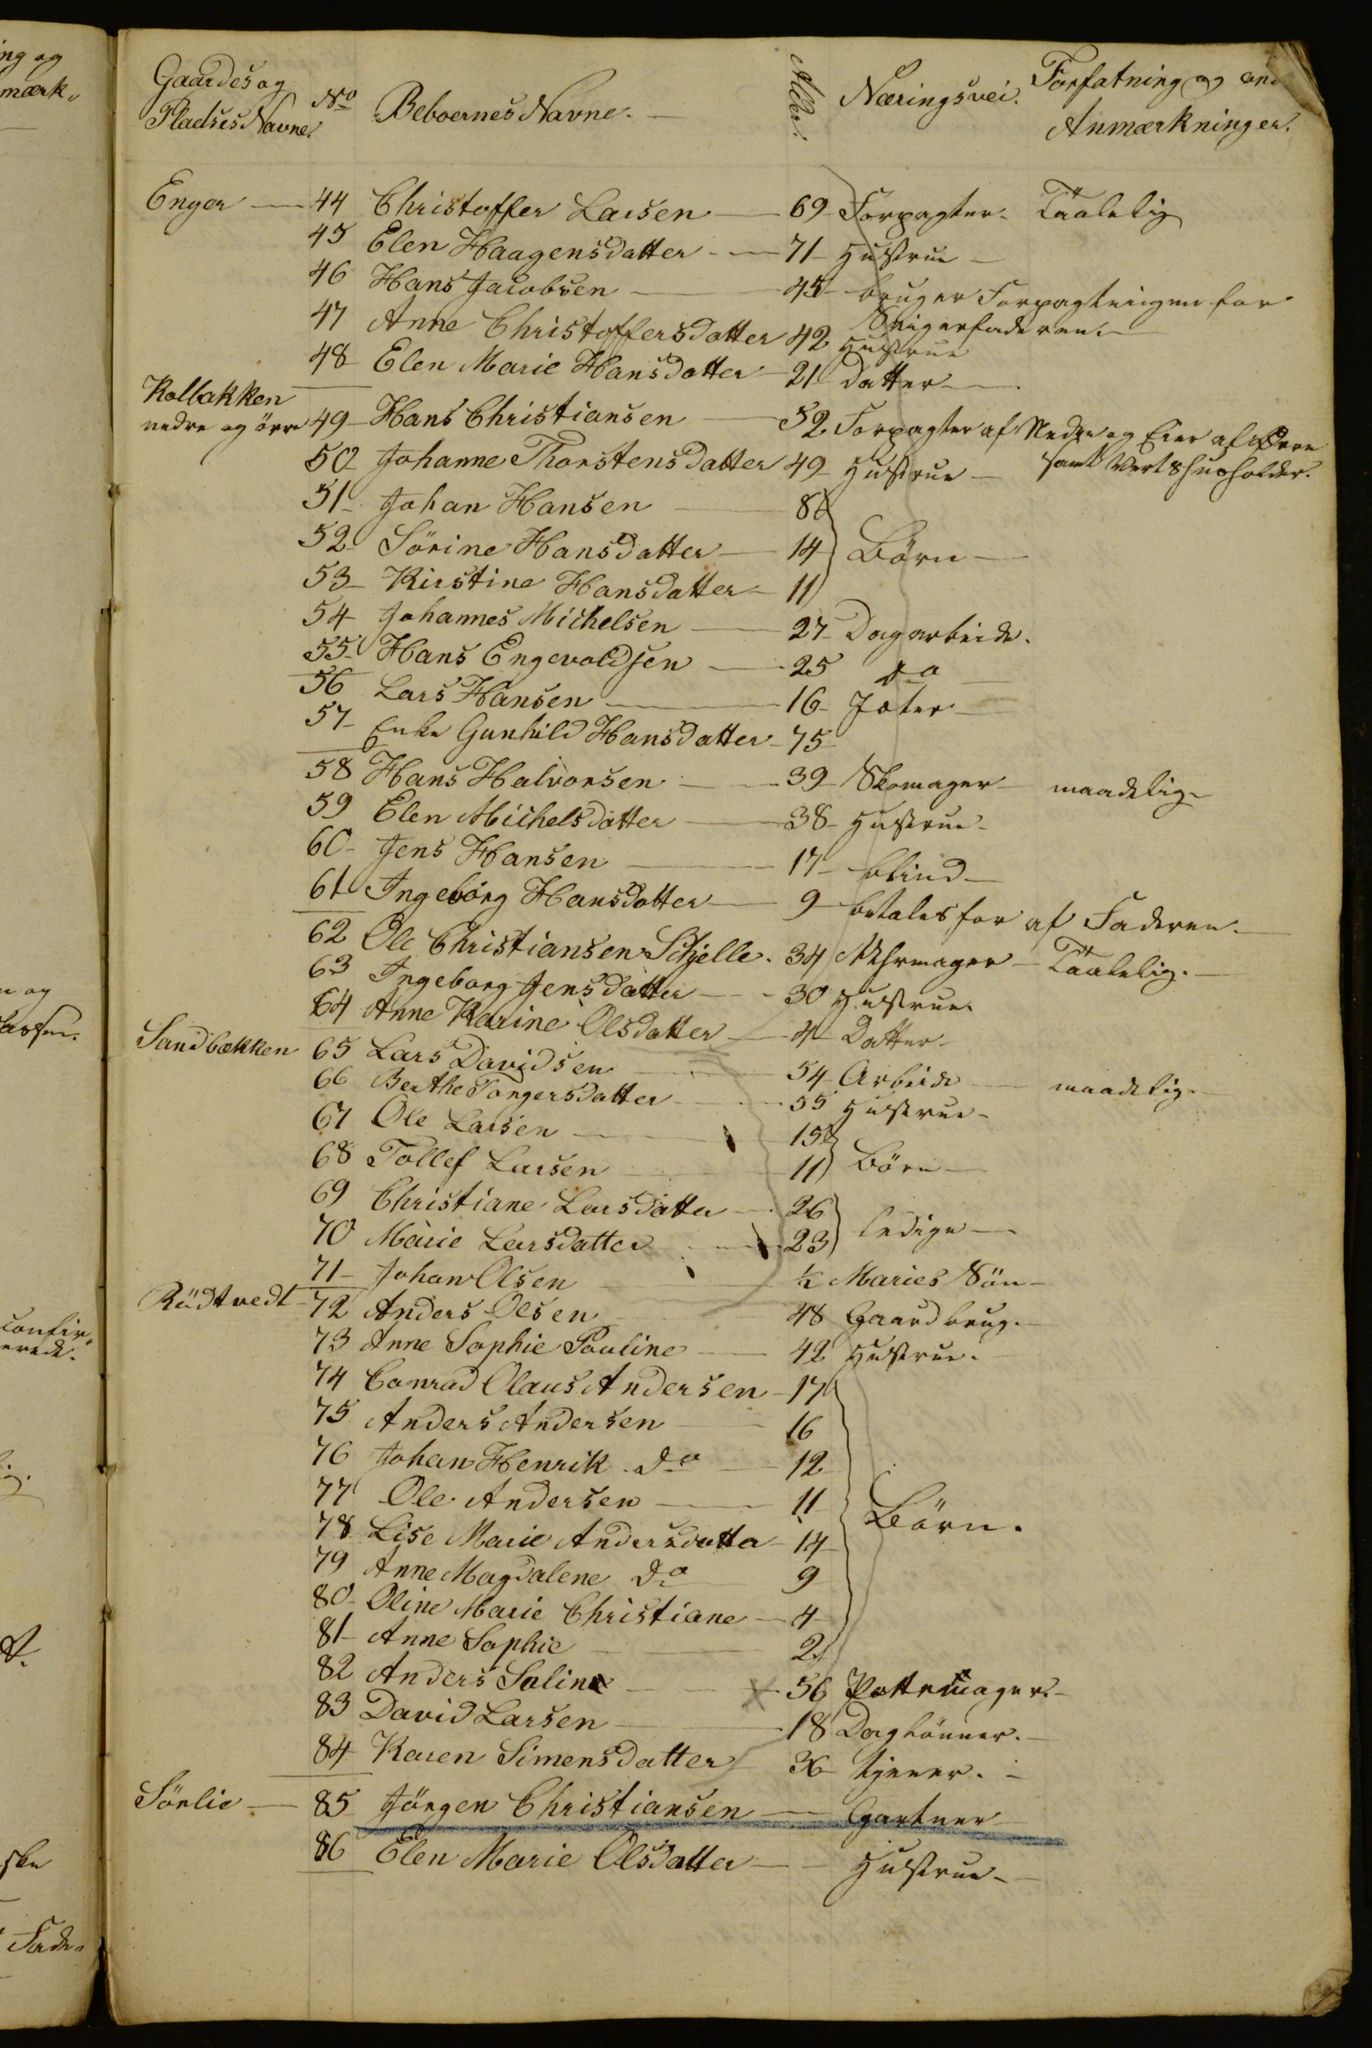 Gaardes og Pladses Navne. No Beboernes Navne. Alder. Næringsvei. Forfatning og Anmærkninger.
Enger 44 Christoffer Larsen 69 Forpagter. Taalelig
45 Elen Haagensdatter 71 Hustrue
46 Hans Jacobsen 45 bruger Forpagtningen for Svigerfaderen.
47 Anne Christoffersdatter 42 Hustrue
48 Elen Marie Hansdatter 21 Datter
Kolbakken nedre og övre 49 Hans Christiansen 52. Forpagter af Nedre og Eier af Övre samt Vertshusholder.
50 Johanne Thorstensdatter 49 Hustrue
51 Johan Hansen 8
52 Sörine Hansdatter 14 Börn
53 Kirstine Hansdatter 11
54 Johannes Michelsen 27 Dagarbeide.
55 Hans Engevoldsen 25 do
56 Lars Hansen 16 Jæter
57 Enke Gunhild Hansdatter 75
58 Hans Halvorsen 39 Skomager maadelig
59 Elen Michelsdatter 38 Hustrue
60 Jens Hansen 17 blind
61 Ingeborg Hansdatter 9 betales for af Faderen.
62 Ole Christiansen Schjelle. 34 Uhrmager Taalelig.
63 Ingeborg Jensdatter 30 Hustrue.
64 Anne Karine Olsdatter 4 Datter
Sandbækken 65 Lars Davidsen 54 Arbeide maadelig.
66 Berthe Torgersdatter 55 Hustrue
67 Ole Larsen 15
68 Tollef Larsen 11 Börn
69 Christiane Larsdatter 26
70 Marie Larsdatter 23 ledige
71 Johan Olsen ½ Maries Sön
Rödtvedt 72 Anders Olsen 48 Gaardbrug.
73 Anne Sophie Pouline 42 Hustrue.
74 Conrad Olaus Andersen 17
75 Anders Andersen 16
76 Johan Henrik do 12
77 Ole Andersen 11 Börn.
78 Lise Marie Andersdatter 14
79 Anne Magdalene do 9
80 Oline Marie Christiane 4
81 Anne Sophie 2
82 Anders Saline 56 Pottemager.
83 David Larsen 18 Daglönner.
84 Karen Simensdatter 36 tjener.
Sörlie 85 Jörgen Christiansen Gartner
86 Elen Marie Olsdatter Hustrue